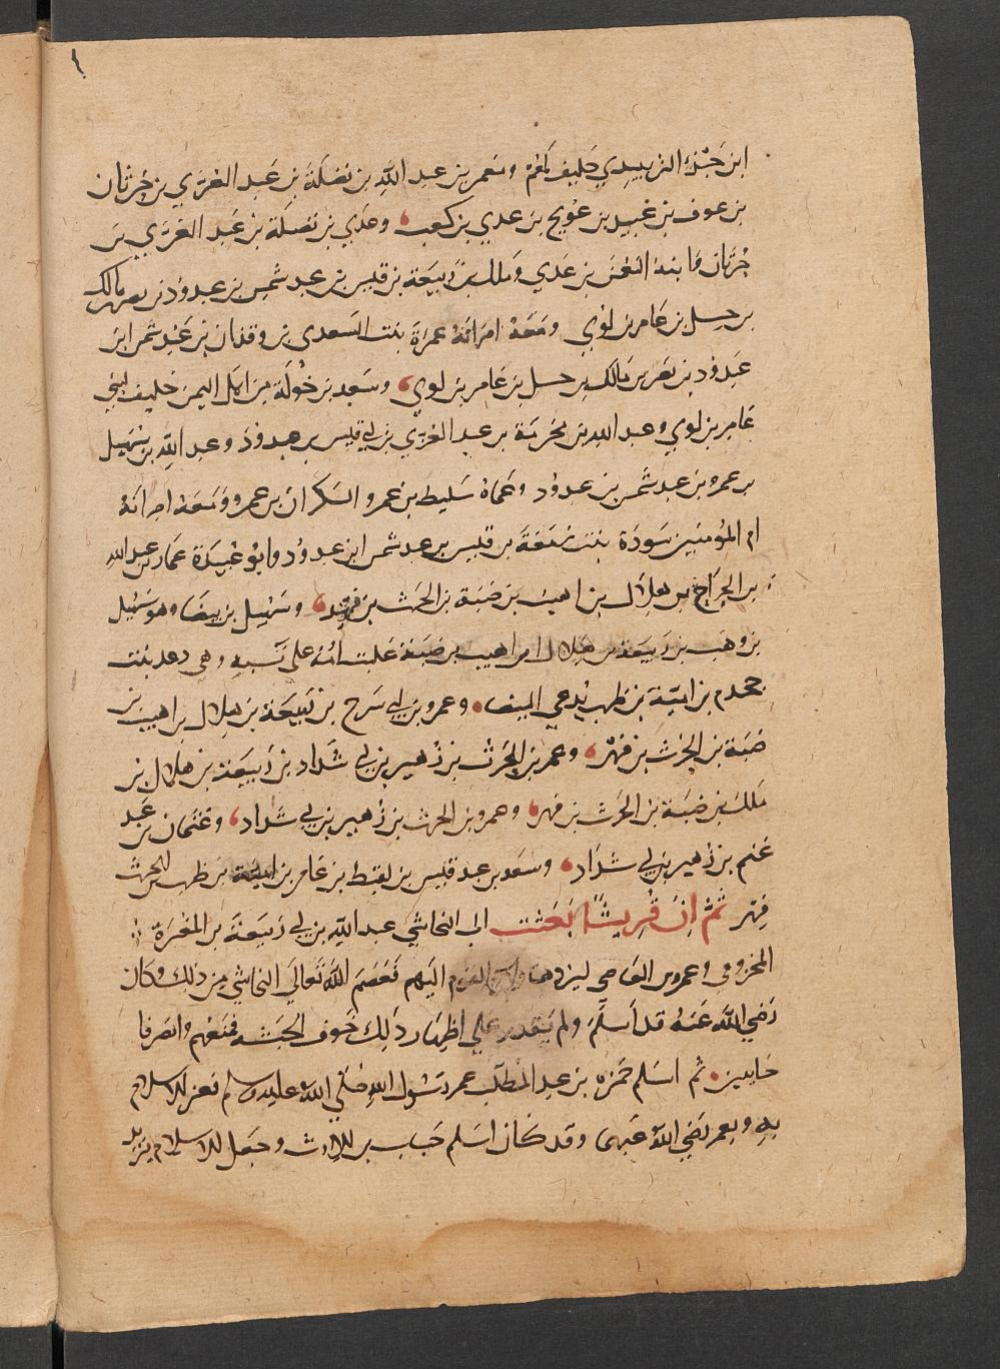 ابن جَزْء الزبيدي حَليف لهم ومعمر بن عبد الله بن نضلَةَ بن عَبد العُزّي بن حُرثان
بن عوف بن عَبيد بن عَويج بن عدي بن كعب وعَدي بن نضلَة بن عَبد العزّي بن
حُرثان وابنهُ النعمن بن عَدي ومَلك بن رَبيعَة بن قيس بن عبد شمس بن عبد وُد بن نصر بن مالك
بن حسل بن عَامر بن لوي ومَعَهُ امراتهُ عمرَة بنت السَعدي بن وقدان بن عَبْد شمس ابن
عَبد وُد بن نصر بن مَالك بن حسل بن عَامر بن لوي وسَعد بن خُولَة من اهل اليمن حَليف لبني
عَامر بن لوي وعبد الله بن مخرمَة بن عبد العُزّي بن ابي قيس بن عبد وُد وعبد الله بن سُهيل
بن عمرو بن عبد شمس بن عبد وُد وعمّاهُ سَليط بن عمرو السَكران بن عمرو ومَعَهُ امراتهُ
ام المؤمنين سَودَة بنت زمعَةَ بن قيس بن عبد شمس ابن عبد وُد وابو عُبيدَة عَامر بن عبد الله
بن الجرّاح بن هلال بن اهيب بن ضبَة بن الحَرث بن فهر وسُهيل بن بيضَا وهو سُهيل
بن وهَب بن رَبيعَة بن هلال ابن اهيب بن ضبَة غلبت امّهُ علي نَسبه وهي دعد بنت
جحدم بن اميّة بن ظرب تُدعي البيضا وعمرو بن ابي سَرح بن رَبيعَة بن هلال بن اهيب بن
ضبَة بن الحَرث بن فهر وعمرو بن الحَرث بن زُهير بن ابي شدّاد بن رَبيعَة بن هلال بن
مَلك بن ضبَة بن الحَرث بن فهر وعمرو بن الحرث بن زُهير بن ابي شدّاد وعُثمان بن عَبد
غنم بن زُهير بن ابي شدّاد وسَعد بن عبد قيس بن لقيط بن عَامر بن اميّة بن ظرب بن الحرث
فهر ثمّ انّ قُريشًا بَعثت الي النجاشي عبد الله بن ابي رَبيعَة بن المغيرَة
المخزومي وعمرو بن العَاصي ليردهما القوم اليهم فَعَصَمَ اللّهُ تَعَالَي النجاشي من ذلك وكان
رَضي اللّه عَنهُ قد اَسلَمَ ولم يَقدر علي اظهَار ذلك خَوف الحَبشه فمنعهُم وانصَرفا
خايبين ثم اسلم حَمزه بن عبد المُطلب عم رَسُول الله صَلّي اللهُ عليه وسلم فعز الاسلام
به وبعمر رضي اللّه عنهما وقد كان اسلم خباب بن الارث وجَعل الاسلام يَزيد